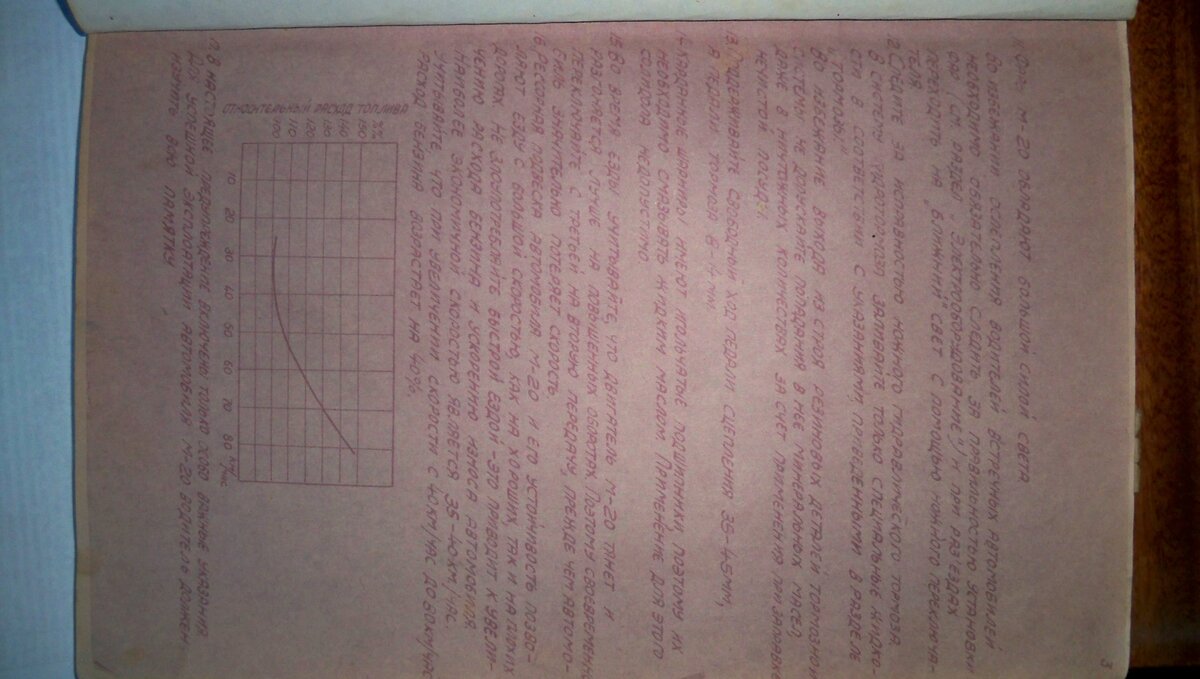 3
11. Фары М-20 обладают большой силой света
Во избежании ослепления водителей встречных автомобилей
необходимо обязательно следить за правильностью установки
фар (см раздел „Электрооборудование") и при разъездах
переходить на „ближний" свет с помощью ножного переключа-
теля
12. Следите за исправностью ножного гидравлического тормоза
В систему гидротормоза заливайте только специальные жидко-
сти в соответствии с указаниями, приведенными в разделе
„Тормозы"
Во избежание выхода из строя резиновых деталей тормозной
системы не допускайте попадания в нее минеральных масел,
даже в ничтожных количествах за счет применения при заправке
нечистой посуды.
13. Поддерживайте свободный ход педали сцепления 38-45мм,
а педали тормоза 8-14 мм
14. Карданные шарниры имеют игольчатые подшипники, поэтому их
необходимо смазывать жидким маслом Применение для этого
солидола недопустимо
15. Во время езды учитывайте, что двигатель М-20 тянет и
разгоняется лучше на повышенных оборотах. Поэтому своевременно
переключайте с третьей на вторую передачу, прежде чем автомо-
биль значительно потеряет скорость
16. Рессорная подвеска автомобиля М-20 и его устойчивость позво-
ляют езду с большой скоростью, как на хороших, так и на плохих
дорогах Не злоупотребляйте быстрой ездой - это приводит к увели-
чению расхода бензина и ускорению износа автомобиля
Наиболее экономичной скоростью является 35-40км/час
Учитывайте, что при увеличении скорости с 40км/час до 80км/час
расход бензина возрастает на 40%.
Относительный расход топлива
%%
150
140
130
120
110
100
10 20 30 40 50 60 70 80 км/час
17. В настоящее предупреждение включены только особо важные указания
Для успешной эксплоатации автомобиля М-20 водитель должен
изучить всю памятку